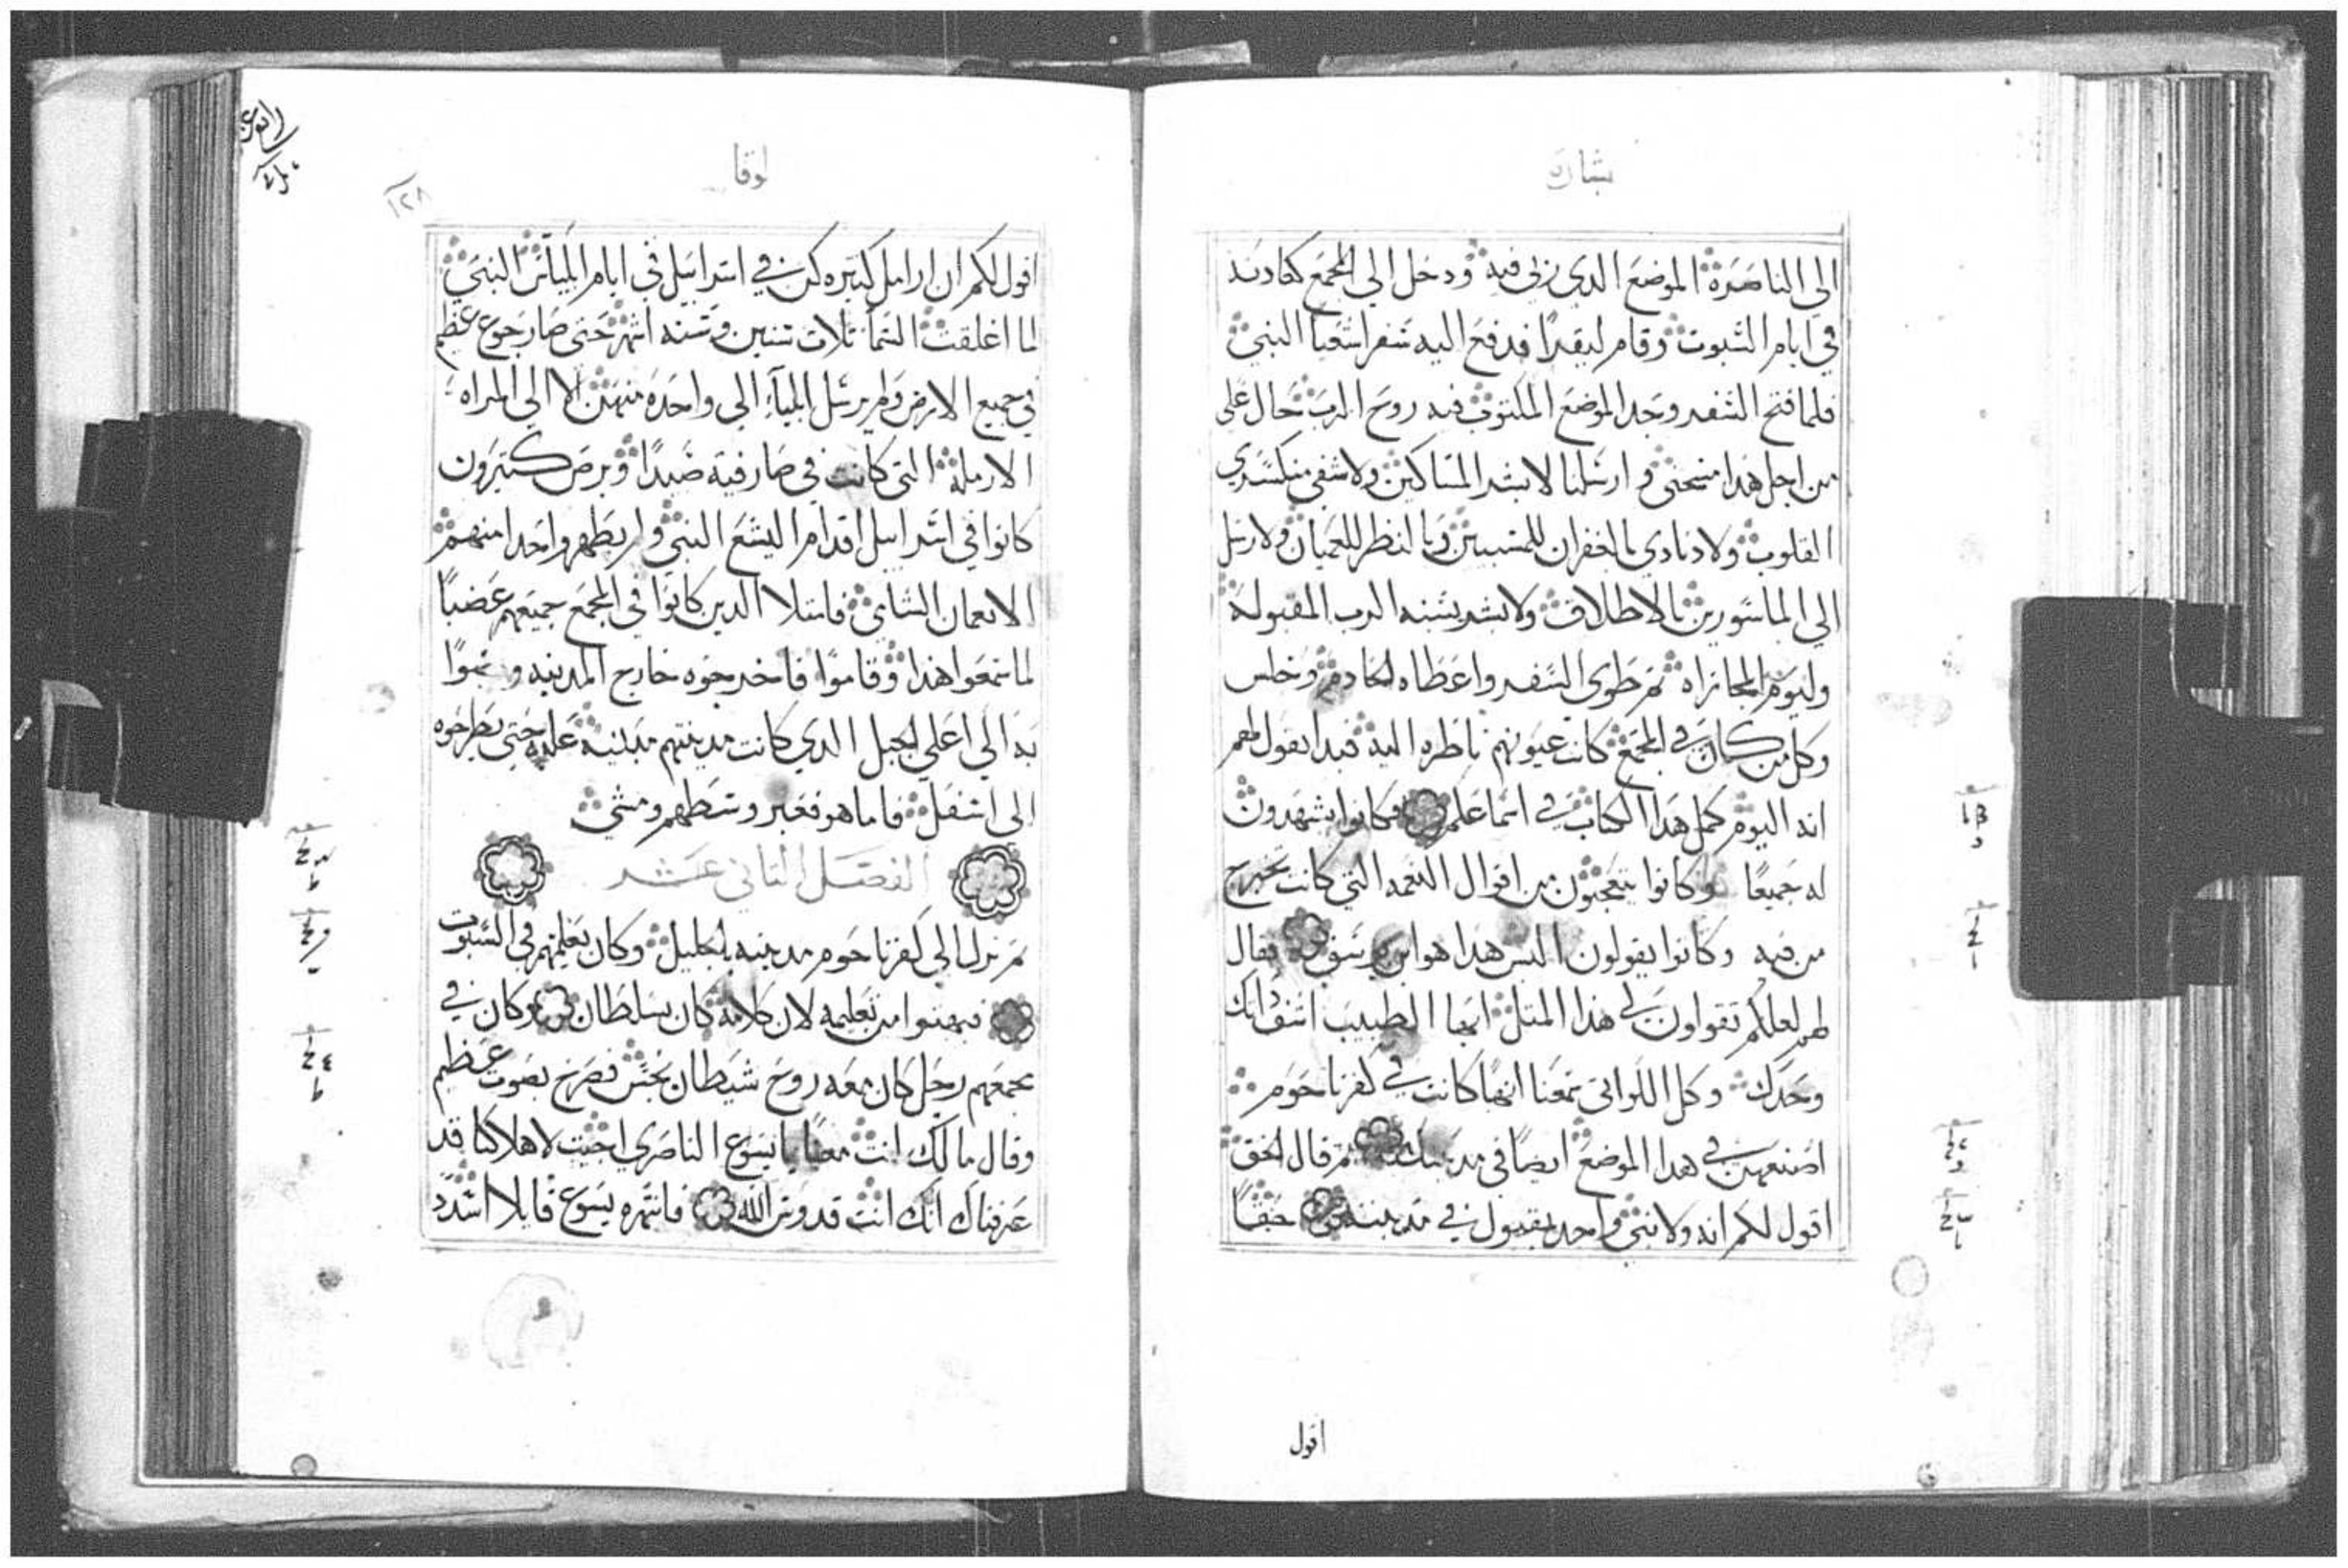 بشارة
الي الناصرة الموضع الدي ربي فيه ودخل الي المجمع كعادته
في ايام السبوت وقام ليقرا فدفع اليه سفر اشعيا النبي
فلما فتح السفر وجد الموضع المكتوب فيه روح الرب حال علي
من اجل هدا مسحني وارسلنا لابشر المساكين ولاشفي منكسري
القلوب ولانادي بالغفران للمسبيين وبالنظر للعميان ولارسل
الي الماسورين بالاطلاق ولابشر بسنه الرب المقبوله
وليوم المجازاه تم طوي السفر واعطاه لخادم وجلس
وكل من كان في المجمع كانت عيونهم ناظره اليه فبدا يقول لهم
انه اليوم كمل هدا الكتاب في اسماعكم فكانوا يشهدون
له جميعا وكانوا يتعجبون من اقوال النعمه التي كانت تخرج
من فيه وكانوا يقولون اليس هدا هو ابن يوسف فقال
لهم لعلكم تقولون لي هدا المتل ايها الطبيب اشف
وحدك وكل اللواتي سمعنا انها كانت في كفرناحوم
اصنعهن في هدا الموضع ايضا في مدينتك تم قال الحق
اقول لكم انه ولا نبي واحد يقبول في مدينته حقا
اقول
لوقا
١٢٨
اقول لكم ان ارامل كتيره كن في اسراييل في ايام ايلياس النبي
لما اغلقت السما تلات سنين وسته اشهر حتي صار جوع عظيم
في جميع الارض ولم يرسل ايلياء الي واحده منهن الا الي المراه
الارملة التي كانت في صارفية صيدا وبرص كتيرون
كانوا في اسراييل اقدام اليشع النبي ولم يطهر واحدا منهم
الا نعمان الشامي فامتلا الدين كانوا في المجمع جميعهم غضبا
لما سمعوا هدا وقاموا فاخرجوه خارج المدينه و
به الي اعلي الجبل الدي كانت مدينتهم مبنية عليه حتي يطرحوه
الي اسفل فاما هو فعبر وسطهم ومشي
الفصل التاني عشر
تم نزل الي كفرناحوم مدينه الجليل وكان يعلمهم في السبوت
فبهتوا من تعليمه لان كلامه كان بسلطان وكان في
مجمعهم رجل كان معه روح شيطان نجس فصرخ بصوت عظيم
وقال ما لك انت معنا يا يسوع الناصري اجيت لاهلاكنا قد
عرفناك انك انت قدوس الله فانتهره يسوع قايلا اشدد